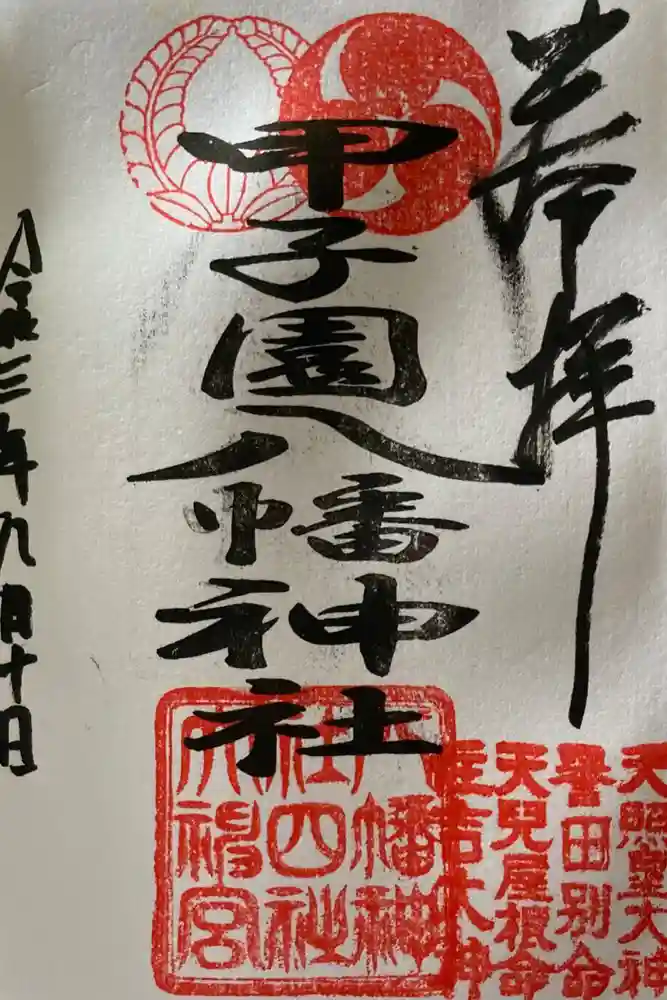 奉拝
天照皇大神
誉田別命
天兒屋根命
住吉大神
甲子園八幡神社
八幡神
社四社
令和三年九月十日